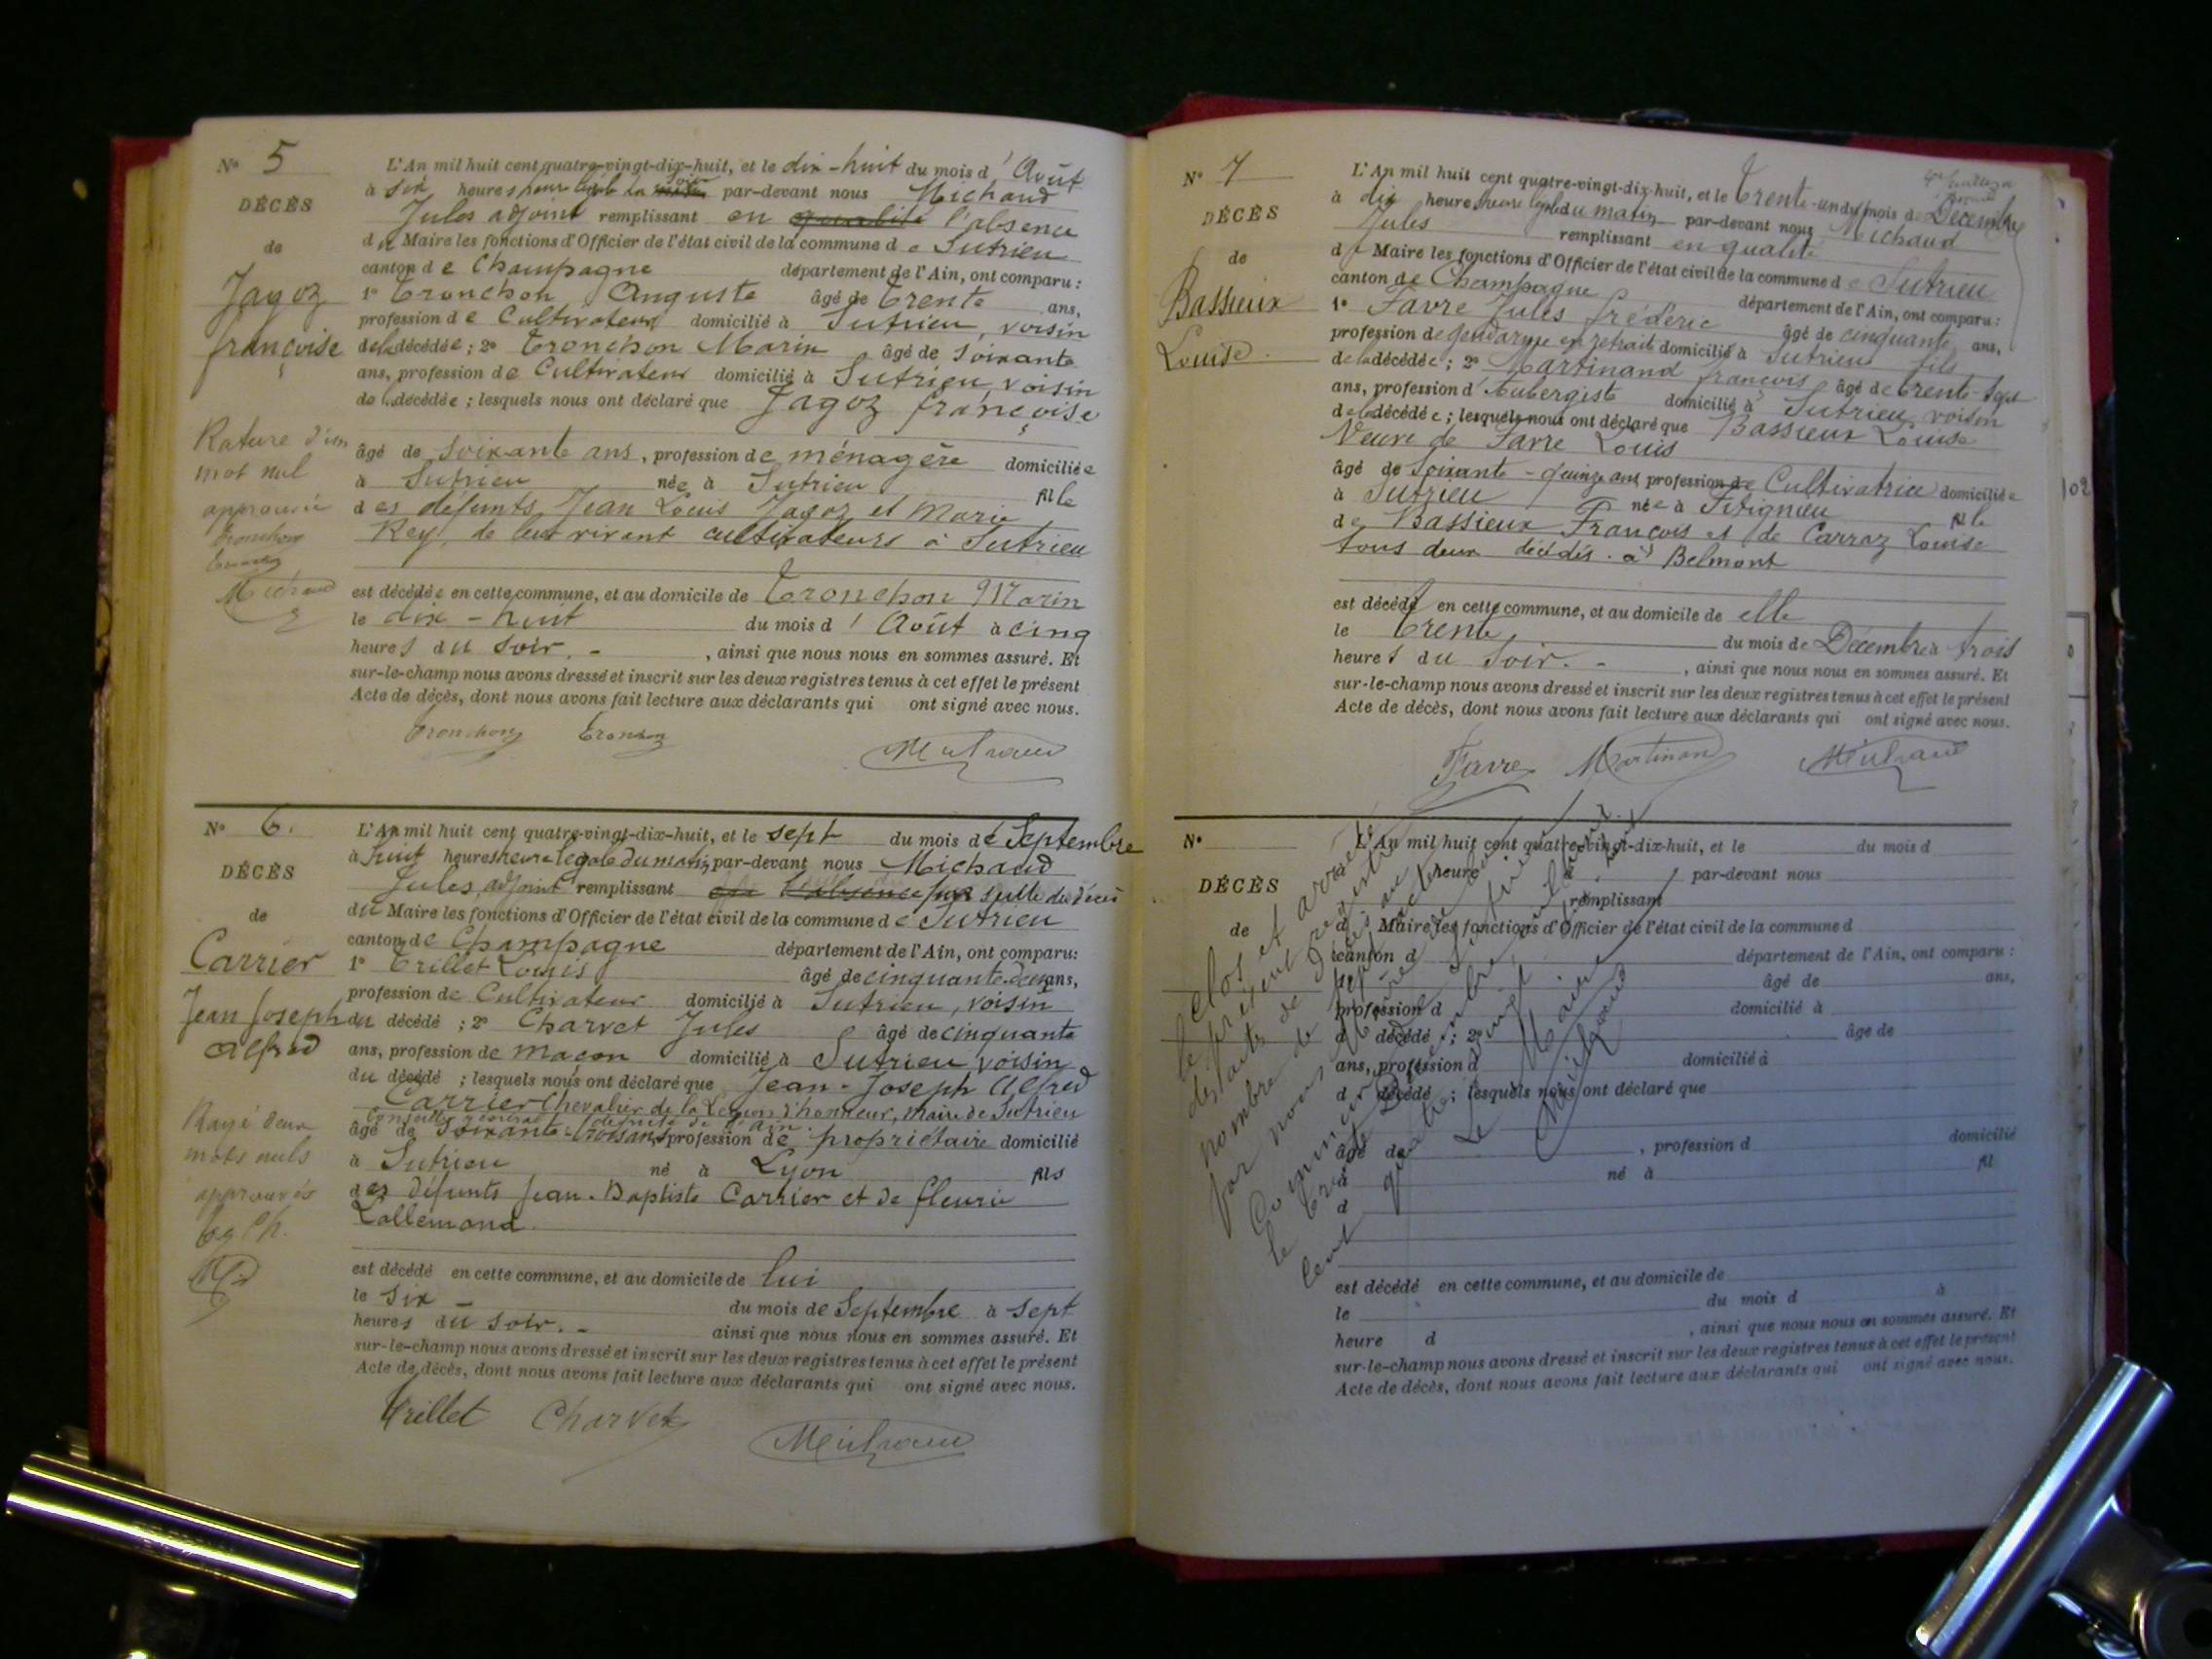 N° 5
DÉCÈS
de
Jagoz
françoise
Rature d'un
mot nul
approuvée
Tronchon
Michaud
L'An mil huit cent quatre-vingt-dix-huit, et le dix-huit du mois d'Août
à six heures heure légale du soir par-devant nous Michaud
Jules adjoint remplissant en qualité l'absence
du Maire les fonctions d'Officier de l'état civil de la commune de Sutrieu
canton de Champagne département de l'Ain, ont comparu :
1° Tronchon Auguste âgé de trente ans,
profession de Cultivateur domicilié à Sutrieu, voisin
de la décédée ; 2° Tronchon Marin âgé de soixante
ans, profession de Cultivateur domicilié à Sutrieu, voisin
de la décédée ; lesquels nous ont déclaré que Jagoz françoise
âgé de soixante ans, profession de ménagère domiciliée
à Sutrieu née à Sutrieu fille
des défunts Jean Louis Jagoz et Marie
Rey, de leur vivant cultivateurs à Sutrieu
est décédée en cette commune, et au domicile de Tronchon Marin
le dix-huit du mois d'Août à cinq
heures du soir. , ainsi que nous nous en sommes assuré. Et
sur-le-champ nous avons dressé et inscrit sur les deux registres tenus à cet effet le présent
Acte de décès, dont nous avons fait lecture aux déclarants qui ont signé avec nous.
Tronchon Tronchon Michaud
N° 6.
DÉCÈS
de
Carrier
Jean Joseph
Alfred
Rayé deux
mots nuls
approuvés
L'An mil huit cent quatre-vingt-dix-huit, et le sept du mois de Septembre
à huit heures heure légale du matin, par-devant nous Michaud
Jules, adjoint remplissant l'absence par suite du décès
du Maire les fonctions d'Officier de l'état civil de la commune de Sutrieu
canton de Champagne département de l'Ain, ont comparu:
1° Trillet Louis âgé de cinquante deux ans,
profession de Cultivateur domicilié à Sutrieu, voisin
du décédé ; 2° Charvet Jules âgé de cinquante
ans, profession de maçon domicilié à Sutrieu, voisin
du décédé ; lesquels nous ont déclaré que Jean-Joseph Alfred
Carrier Chevalier de la Légion d'honneur, maire de Sutrieu
Conseiller général député de l'Ain.
âgé de soixante-trois ans, profession de propriétaire domicilié
à Sutrieu né à Lyon fils
des défunts Jean-Baptiste Carrier et de fleurie
Lallemand.
est décédé en cette commune, et au domicile de lui
le six du mois de Septembre à sept
heures du soir. ainsi que nous nous en sommes assuré. Et
sur-le-champ nous avons dressé et inscrit sur les deux registres tenus à cet effet le présent
Acte de décès, dont nous avons fait lecture aux déclarants qui ont signé avec nous.
Trillet Charvet Michaud
N° 7
DÉCÈS
de
Bassieux
Louise.
L'An mil huit cent quatre-vingt-dix-huit, et le trente-un du mois de Décembre
à dix heures heure légale du matin par-devant nous Michaud
Jules remplissant en qualité
de Maire les fonctions d'Officier de l'état civil de la commune de Sutrieu
canton de Champagne département de l'Ain, ont comparu :
1° Favre Jules frédéric âgé de cinquante ans,
profession de gendarme en retraite domicilié à Sutrieu fils
de la décédée ; 2° Martinand françois âgé de trente-sept
ans, profession d'Aubergiste domicilié à Sutrieu, voisin
de la décédée ; lesquels nous ont déclaré que Bassieux Louise
Veuve de Favre Louis
âgé de soixante-quinze ans profession de Cultivatrice domiciliée
à Sutrieu née à Fitignieu fille
de Bassieux François et de Carraz Louise
tous deux décédés à Belmont
est décédé en cette commune, et au domicile de elle
le trente du mois de Décembre à trois
heures du soir. , ainsi que nous nous en sommes assuré. Et
sur-le-champ nous avons dressé et inscrit sur les deux registres tenus à cet effet le présent
Acte de décès, dont nous avons fait lecture aux déclarants qui ont signé avec nous.
Favre Martinand Michaud
N°
DÉCÈS
de
L'An mil huit cent quatre-vingt-dix-huit, et le du mois d
à heure par-devant nous
remplissant
d Maire les fonctions d'Officier de l'état civil de la commune d
canton d département de l'Ain, ont comparu :
1° âgé de ans,
profession d domicilié à
d décédé ; 2° âgé de
ans, profession d domicilié à
d décédé ; lesquels nous ont déclaré que
âgé de , profession d domicilié
à né à fil
d
est décédé en cette commune, et au domicile de
le du mois d à
heure d , ainsi que nous nous en sommes assuré. Et
sur-le-champ nous avons dressé et inscrit sur les deux registres tenus à cet effet le présent
Acte de décès, dont nous avons fait lecture aux déclarants qui ont signé avec nous.
Clos et arrêté
le présent registre
des actes de décès au
nombre de sept actes
par nous Maire de la
Commune de Sutrieu
le trente Décembre mil huit
cent quatre vingt dix huit
Le Maire
Michaud
102